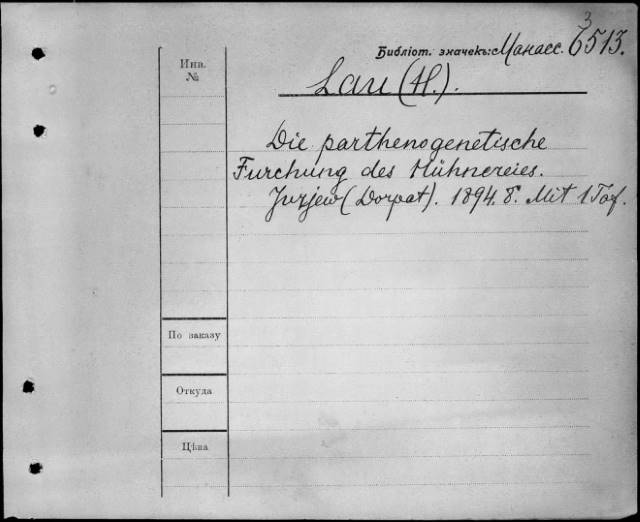 3
Библіот. значекъ: Манасс. 6513.
Инв.
№
Lau (H.).
Die parthenogenetische
Furchung des Hühnereies.
Jurjew (Dorpat). 1894. 8°. Mit 1 Taf.
По заказу
Откуда
Цѣна